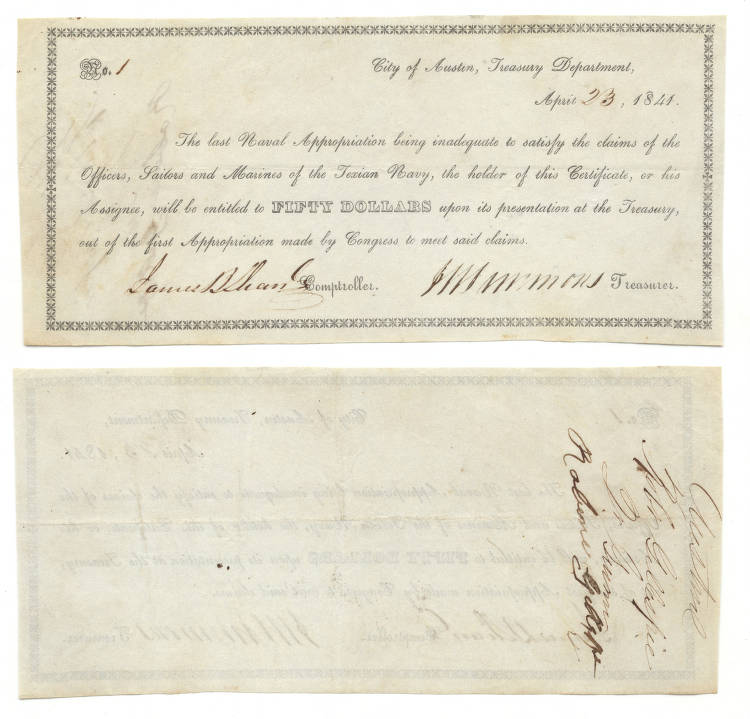 No. 1
City of Austin, Treasury Department,
April 23, 1841.
The last Naval Appropriation being inadequate to satisfy the claims of the
Officers, Sailors and Marines of the Texian Navy, the holder of this Certificate, or his
Assignee, will be entitled to FIFTY DOLLARS upon its presentation at the Treasury,
out of the first Appropriation made by Congress to meet said claims.
James B Shaw Comptroller. Simmons Treasurer.
Gillespie
Robinson Gillespie